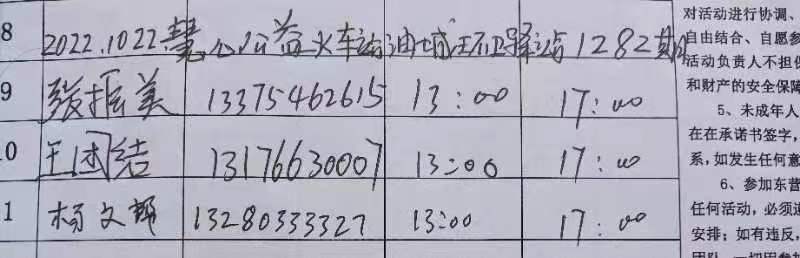 8 2022.1022.慧心公益火车站油城环卫驿站1282期
9 张振美 13375462615 13:00 17:00
0 王团结 13176630007 13:00 17:00
1 杨文郁 13280333327 13:00 17:00
对活动进行协调、
自由结合、自愿参
活动负责人不担保
和财产的安全保障
5、未成年人
在在承诺书签字,
系,如发生任何意
6、参加东营
任何活动,必须遵
安排;如有违反,